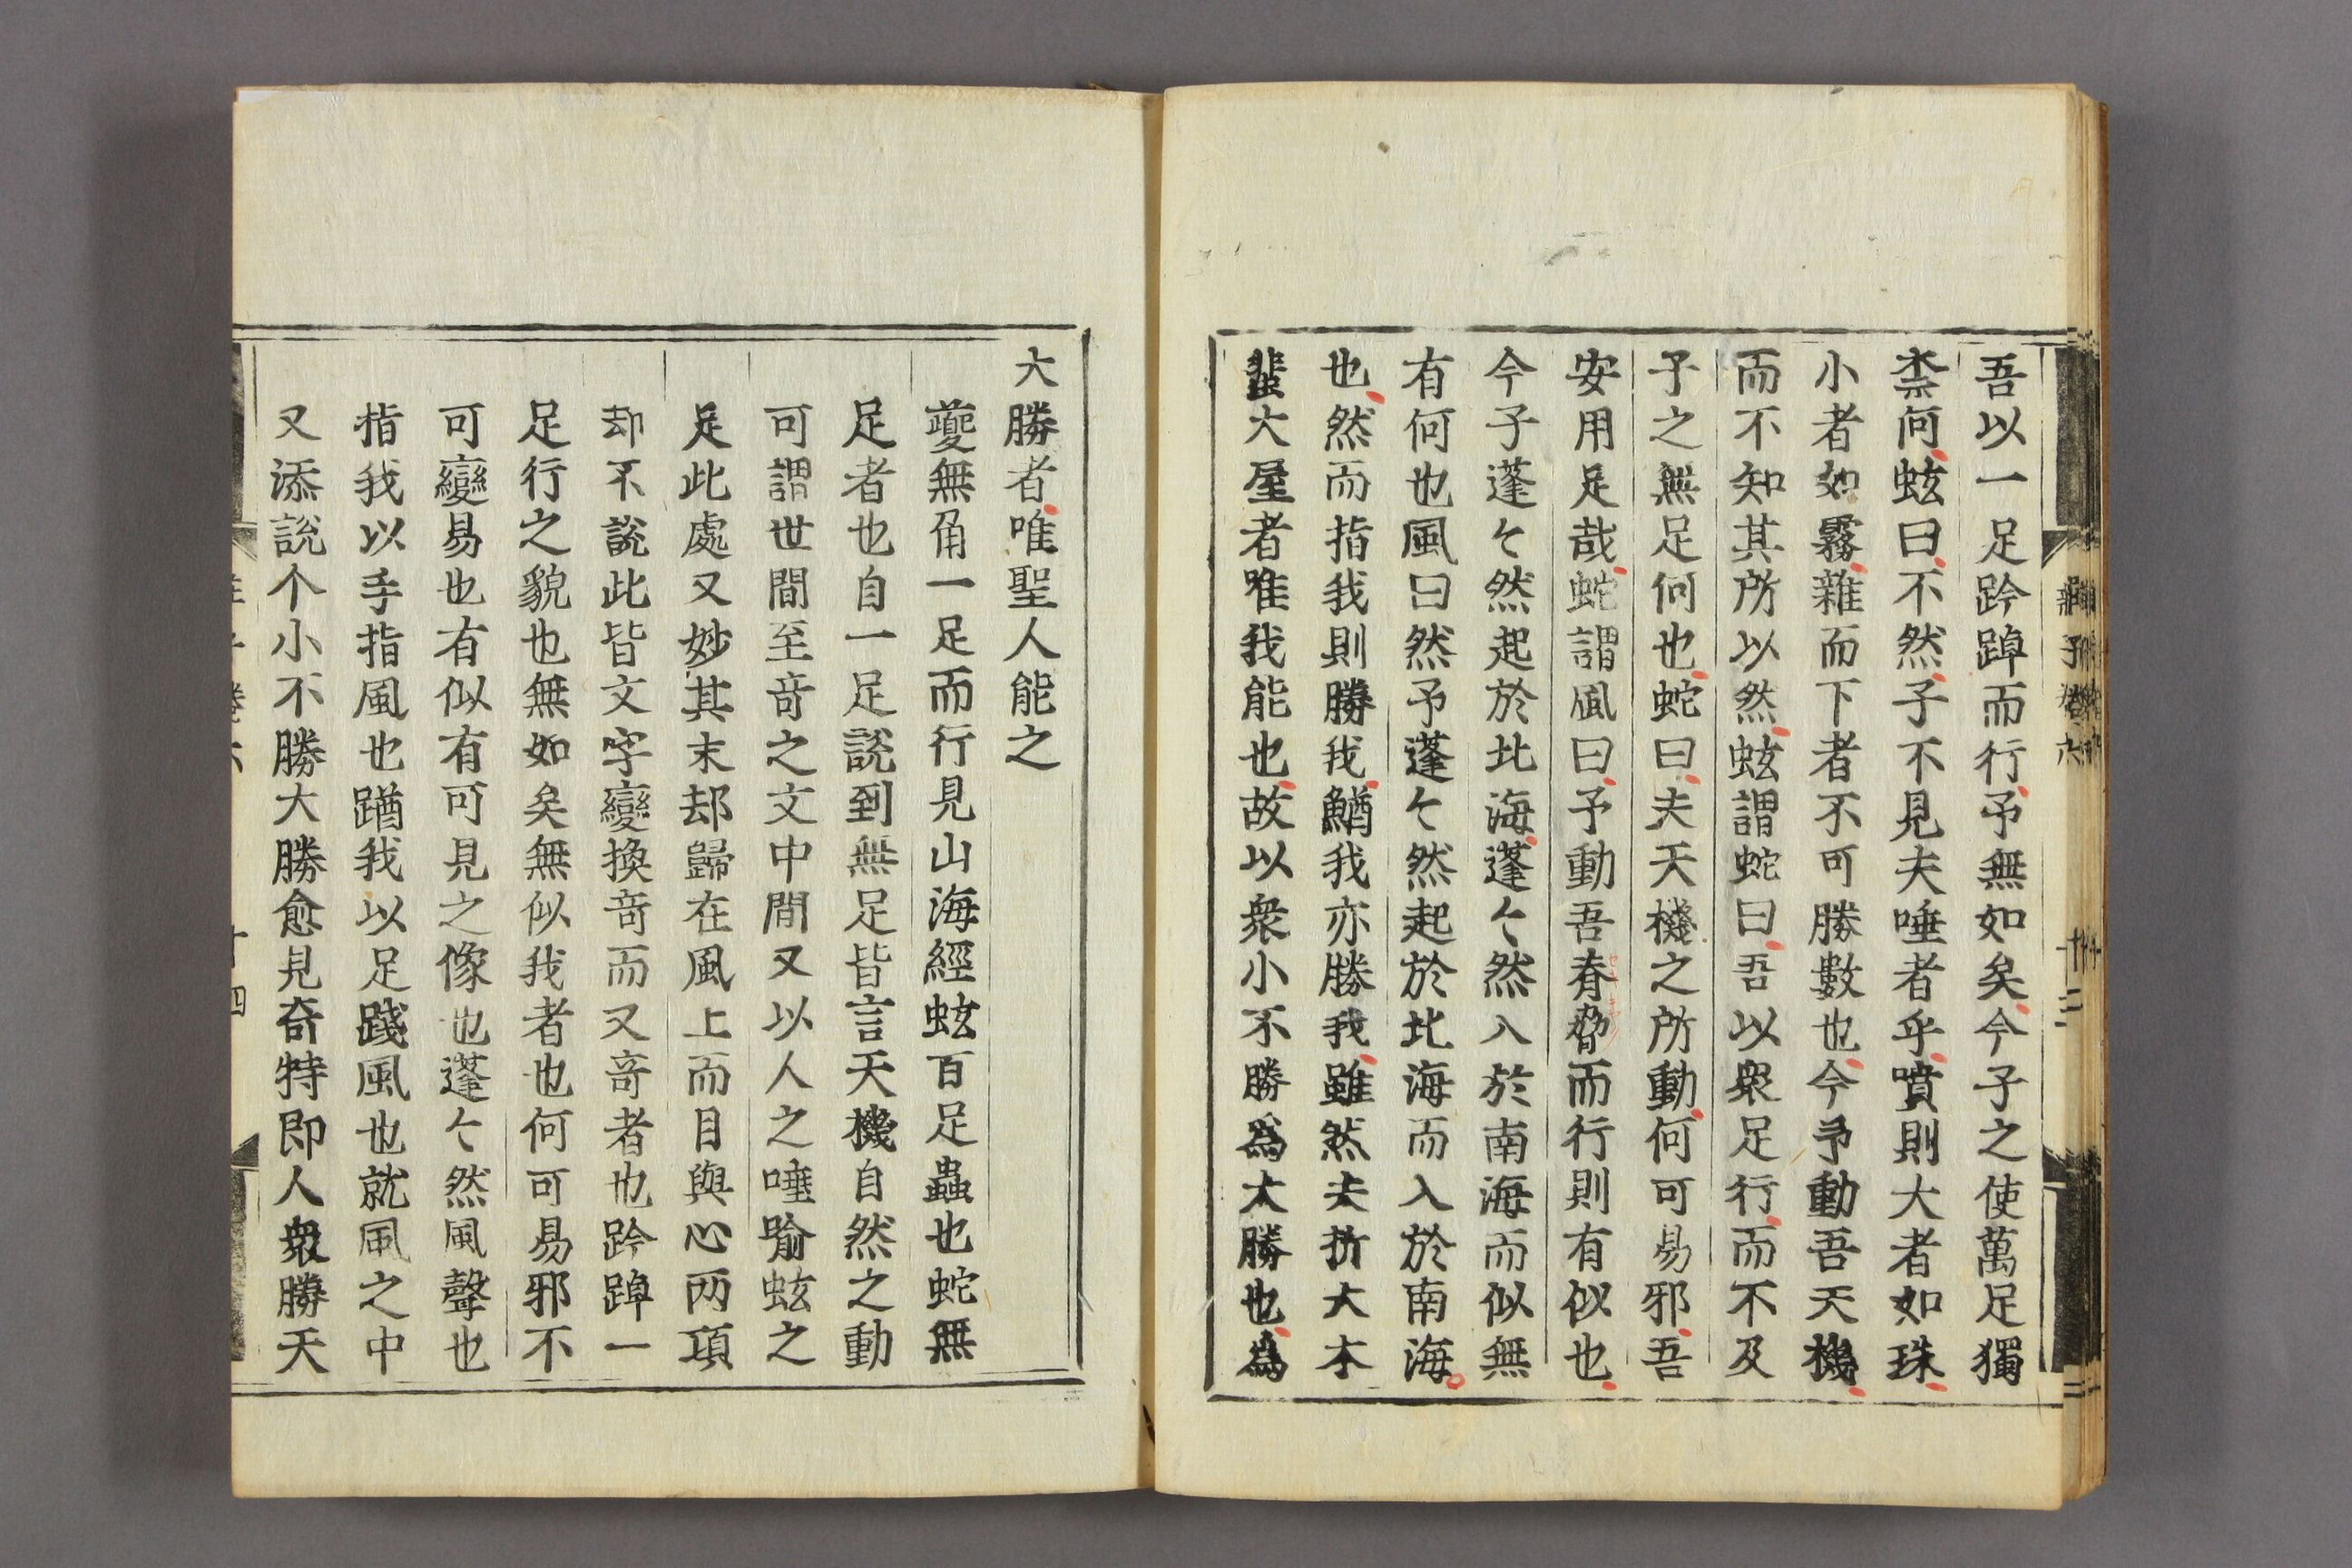 吾以一足跉踔而行予無如矣今子之使萬足獨
柰何蚿曰不然子不見夫唾者乎噴則大者如珠
小者如霧雜而下者不可勝數也今予動吾天機
而不知其所以然蚿謂蛇曰吾以衆足行而不及
子之無足何也蛇曰夫天機之所動何可易邪吾
安用足哉蛇謂風曰予動吾脊脅而行則有似也
今子蓬〻然起於北海蓬〻然入於南海而似無
有何也風曰然予蓬〻然起於北海而入於南海
也然而指我則勝我鰌我亦勝我雖然夫折大木
蜚大屋者唯我能也故以衆小不勝爲大勝也爲
大勝者唯聖人能之
夔無角一足而行見山海經蚿百足蟲也蛇無
足者也自一足說到無足皆言天機自然之動
可謂世間至竒之文中間又以人之唾踰蚿之
足此處又妙其末却歸在風上而目與心两項
却不說此皆文字變換竒而又竒者也跉踔一
足行之貌也無如矣無似我者也何可易邪不
可變易也有似有可見之像也蓬〻然風聲也
指我以手指風也蹭我以足踐風也就風之中
又添說个小不勝大勝愈見奇特即人衆勝天
十四